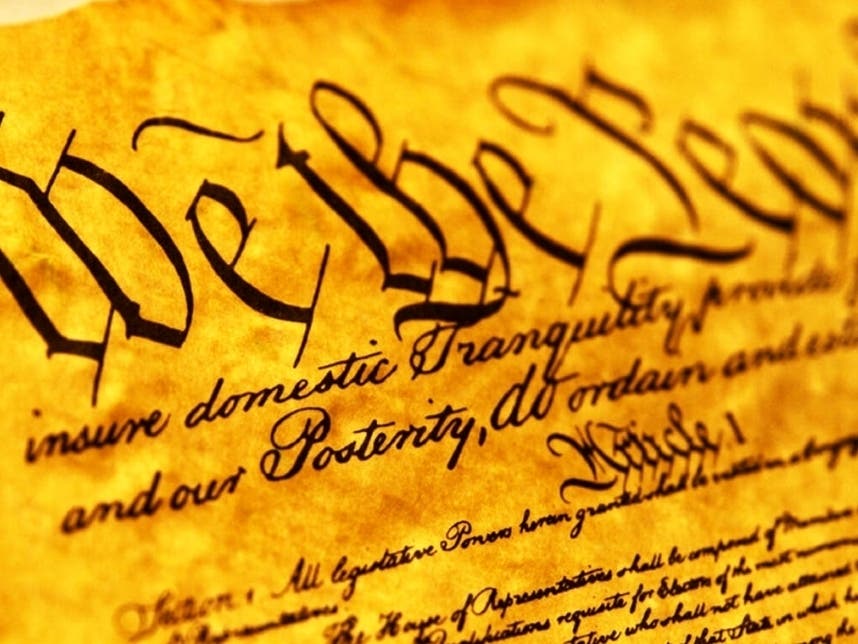 We the Peop
insure domestic Tranquility, provide
and our Posterity, do ordain and est
Article 1
Section 1 All legislative Powers herein granted shall be vested in a
Representatives.
The House of Representatives shall be composed of Members
Qualifications requisite for Electors of the most numerous
tative who shall not have attained
that State in which he